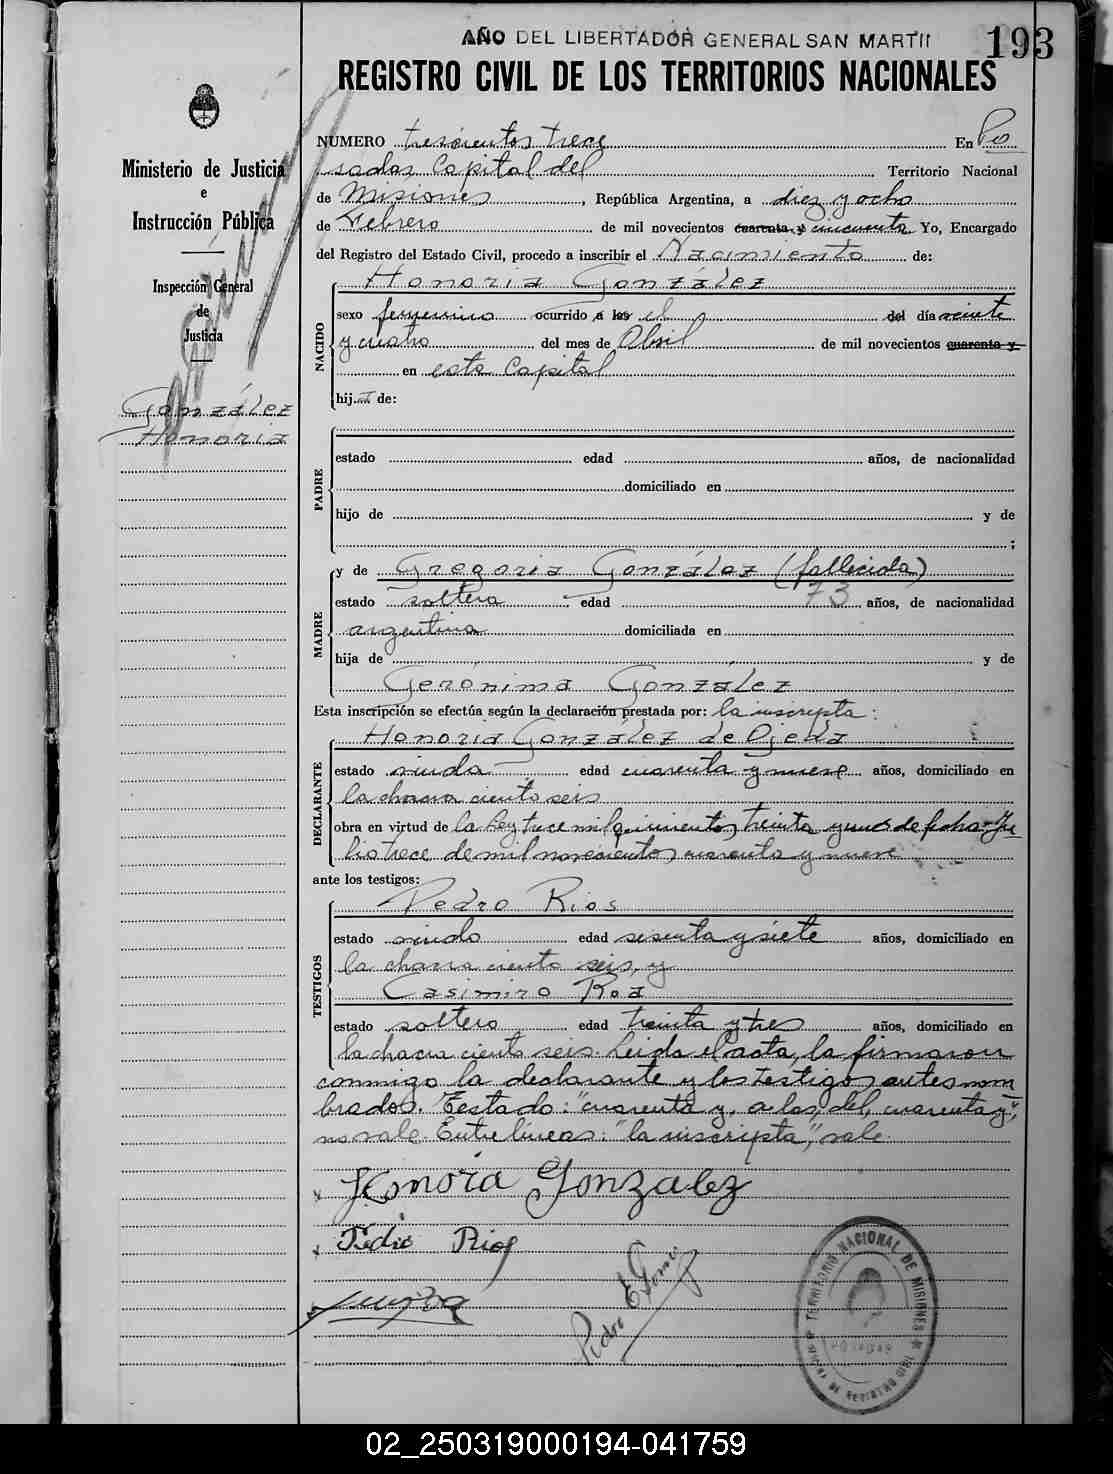 AÑO DEL LIBERTADOR GENERAL SAN MARTIN
193
REGISTRO CIVIL DE LOS TERRITORIOS NACIONALES
Ministerio de Justicia
e
Instrucción Pública
Inspección General
de
Justicia
González
Honoria
NUMERO trescientos trece En Po
sadas Capital del Territorio Nacional
de Misiones, República Argentina, a diez y ocho
de Febrero de mil novecientos cuarenta y cincuenta Yo, Encargado
del Registro del Estado Civil, procedo a inscribir el Nacimiento de:
NACIDO
Honoria González
sexo femenino ocurrido a las el del día veinte
y cuatro del mes de Abril de mil novecientos cuarenta y
en esta Capital
hija de:
PADRE
estado edad años, de nacionalidad
domiciliado en
hijo de y de
;
MADRE
y de Gregoria González (fallecida)
estado soltera edad 73 años, de nacionalidad
argentina domiciliada en
hija de y de
Gerónima González
Esta inscripción se efectúa según la declaración prestada por: la inscripta:
DECLARANTE
Honoria González de Ojeda
estado viuda edad cuarenta y nueve años, domiciliado en
la chacra ciento seis
obra en virtud de la Ley trece mil quinientos treinta y uno de fecha Ju
lio trece de mil novecientos cuarenta y nueve
ante los testigos:
TESTIGOS
Pedro Rios
estado viudo edad sesenta y siete años, domiciliado en
la chacra ciento seis, y
Casimiro Roa
estado soltero edad treinta y tres años, domiciliado en
la chacra ciento seis. Leida el acta, la firmaron
conmigo la declarante y los testigos antes nom
brados. Testado: "cuarenta y, a las, del, cuarenta y",
no vale. Entre líneas: "la inscripta", vale.
Honora Gonzalez
Pedro Rios
Pedro E Gomez
TERRITORIO NACIONAL DE MISIONES
POSADAS
02_250319000194-041759